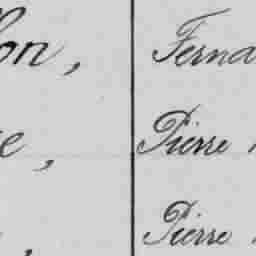 on, Ferna
e, Pierre
, Pierre